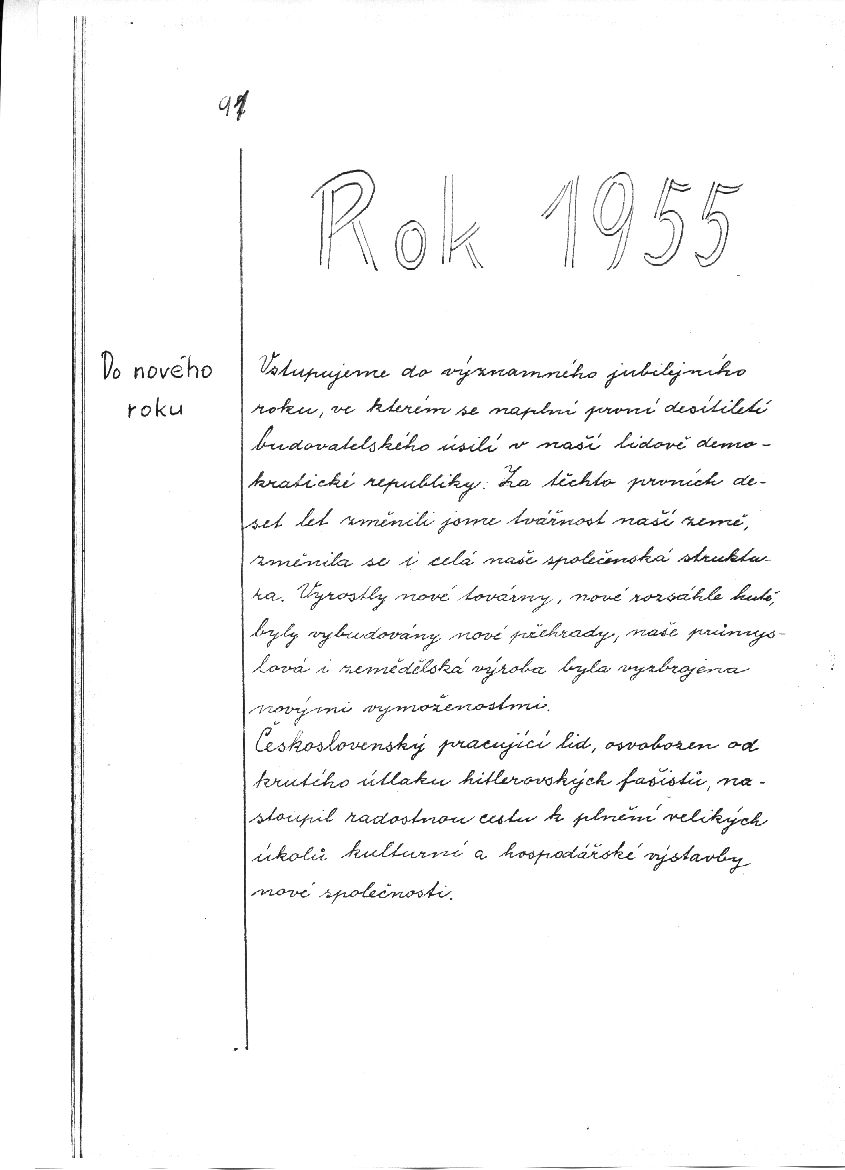 91
Rok 1955
Do nového
roku
Vstupujeme do významného jubilejního
roku, ve kterém se naplní první desítiletí
budovatelského úsilí v naší lidově demo-
kratické republiky. Za těchto prvních de-
set let změnili jsme tvářnost naší země,
změnila se i celá naše společenská struktu-
ra. Vyrostly nové továrny, nové rozsáhle hutě,
byly vybudovány nové přehrady, naše průmys-
lová i zemědělská výroba byla vyzbrojena
novými vymoženostmi.
Československý pracující lid, osvobozen od
krutého útlaku hitlerovských fašistů, na-
stoupil radostnou cestu k plnění velikých
úkolů kulturní a hospodářské výstavby
nové společnosti.